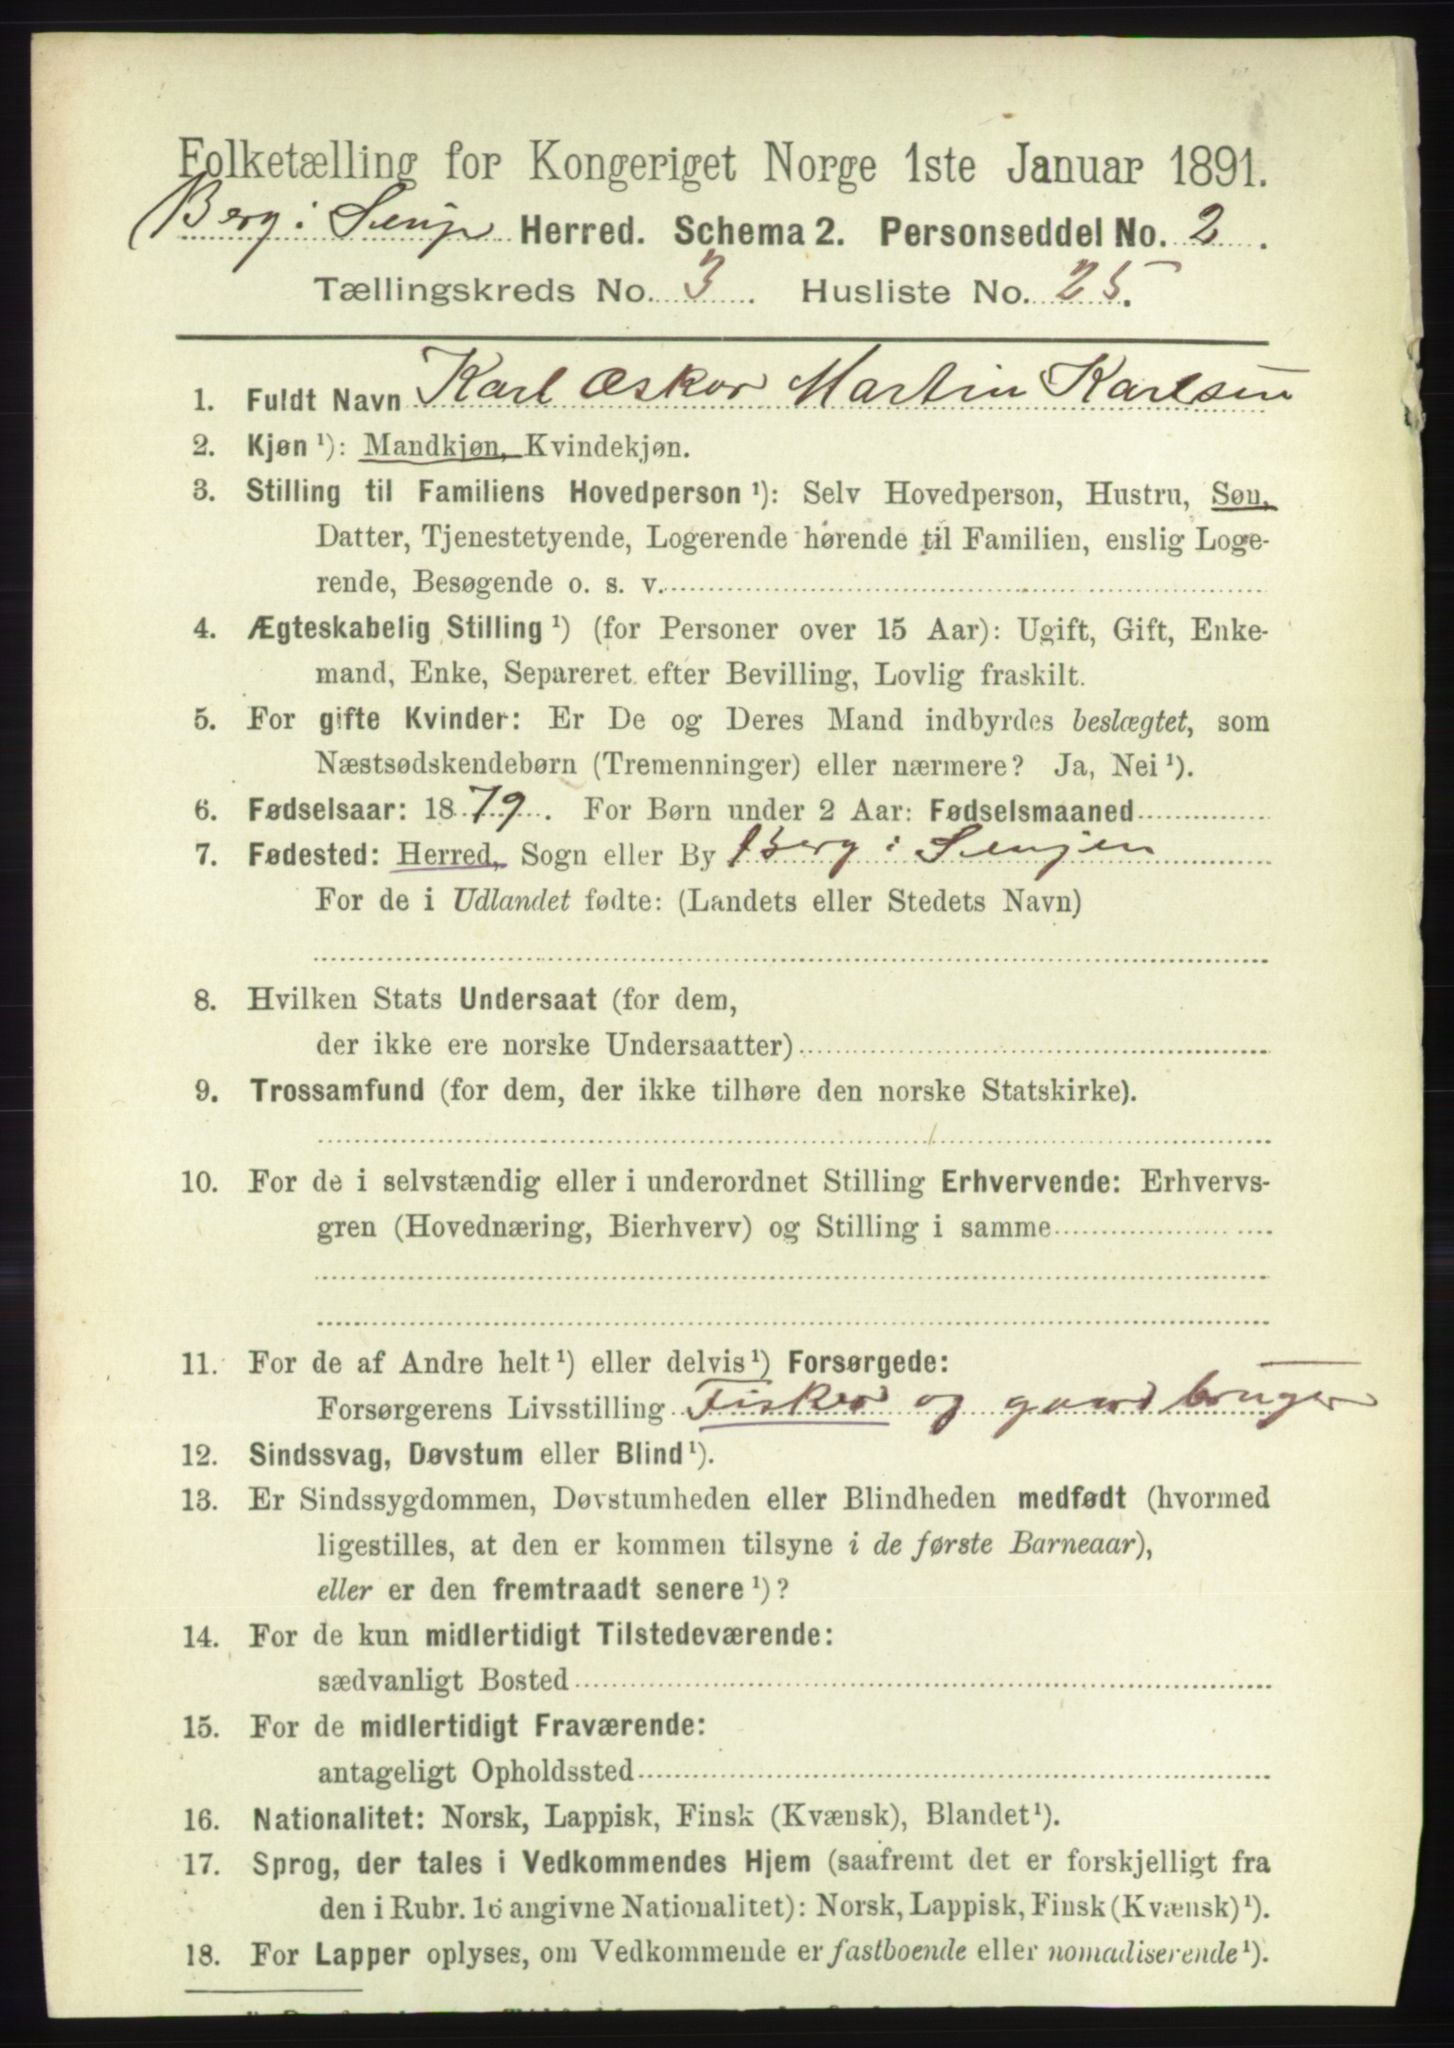 Folketælling for Kongeriget Norge 1ste Januar 1891.
Berg i Senjen Herred. Schema 2. Personseddel No. 2.
Tællingskreds No. 3. Husliste No. 25.
1. Fuldt Navn Karl Oskar Martin Karlsen
2. Kjøn ¹): Mandkjøn, Kvindekjøn.
3. Stilling til Familiens Hovedperson ¹): Selv Hovedperson, Hustru, Søn,
Datter, Tjenestetyende, Logerende hørende til Familien, enslig Loge-
rende, Besøgende o. s. v.
4. Ægteskabelig Stilling ¹) (for Personer over 15 Aar): Ugift, Gift, Enke-
mand, Enke, Separeret efter Bevilling, Lovlig fraskilt.
5. For gifte Kvinder: Er De og Deres Mand indbyrdes beslægtet, som
Næstsødskendebørn (Tremenninger) eller nærmere? Ja, Nei ¹).
6. Fødselsaar: 1879. For Børn under 2 Aar: Fødselsmaaned
7. Fødested: Herred, Sogn eller By Berg i Senjen
For de i Udlandet fødte: (Landets eller Stedets Navn)
8. Hvilken Stats Undersaat (for dem,
der ikke ere norske Undersaatter)
9. Trossamfund (for dem, der ikke tilhøre den norske Statskirke).
10. For de i selvstændig eller i underordnet Stilling Erhvervende: Erhvervs-
gren (Hovednæring, Bierhverv) og Stilling i samme
11. For de af Andre helt ¹) eller delvis ¹) Forsørgede:
Forsørgerens Livsstilling Fisker og gaardbruger
12. Sindssvag, Døvstum eller Blind ¹).
13. Er Sindssygdommen, Døvstumheden eller Blindheden medfødt (hvormed
ligestilles, at den er kommen tilsyne i de første Barneaar),
eller er den fremtraadt senere ¹)?
14. For de kun midlertidigt Tilstedeværende:
sædvanligt Bosted
15. For de midlertidigt Fraværende:
antageligt Opholdssted
16. Nationalitet: Norsk, Lappisk, Finsk (Kvænsk), Blandet ¹).
17. Sprog, der tales i Vedkommendes Hjem (saafremt det er forskjelligt fra
den i Rubr. 16 angivne Nationalitet): Norsk, Lappisk, Finsk (Kvænsk) ¹).
18. For Lapper oplyses, om Vedkommende er fastboende eller nomadiserende ¹).